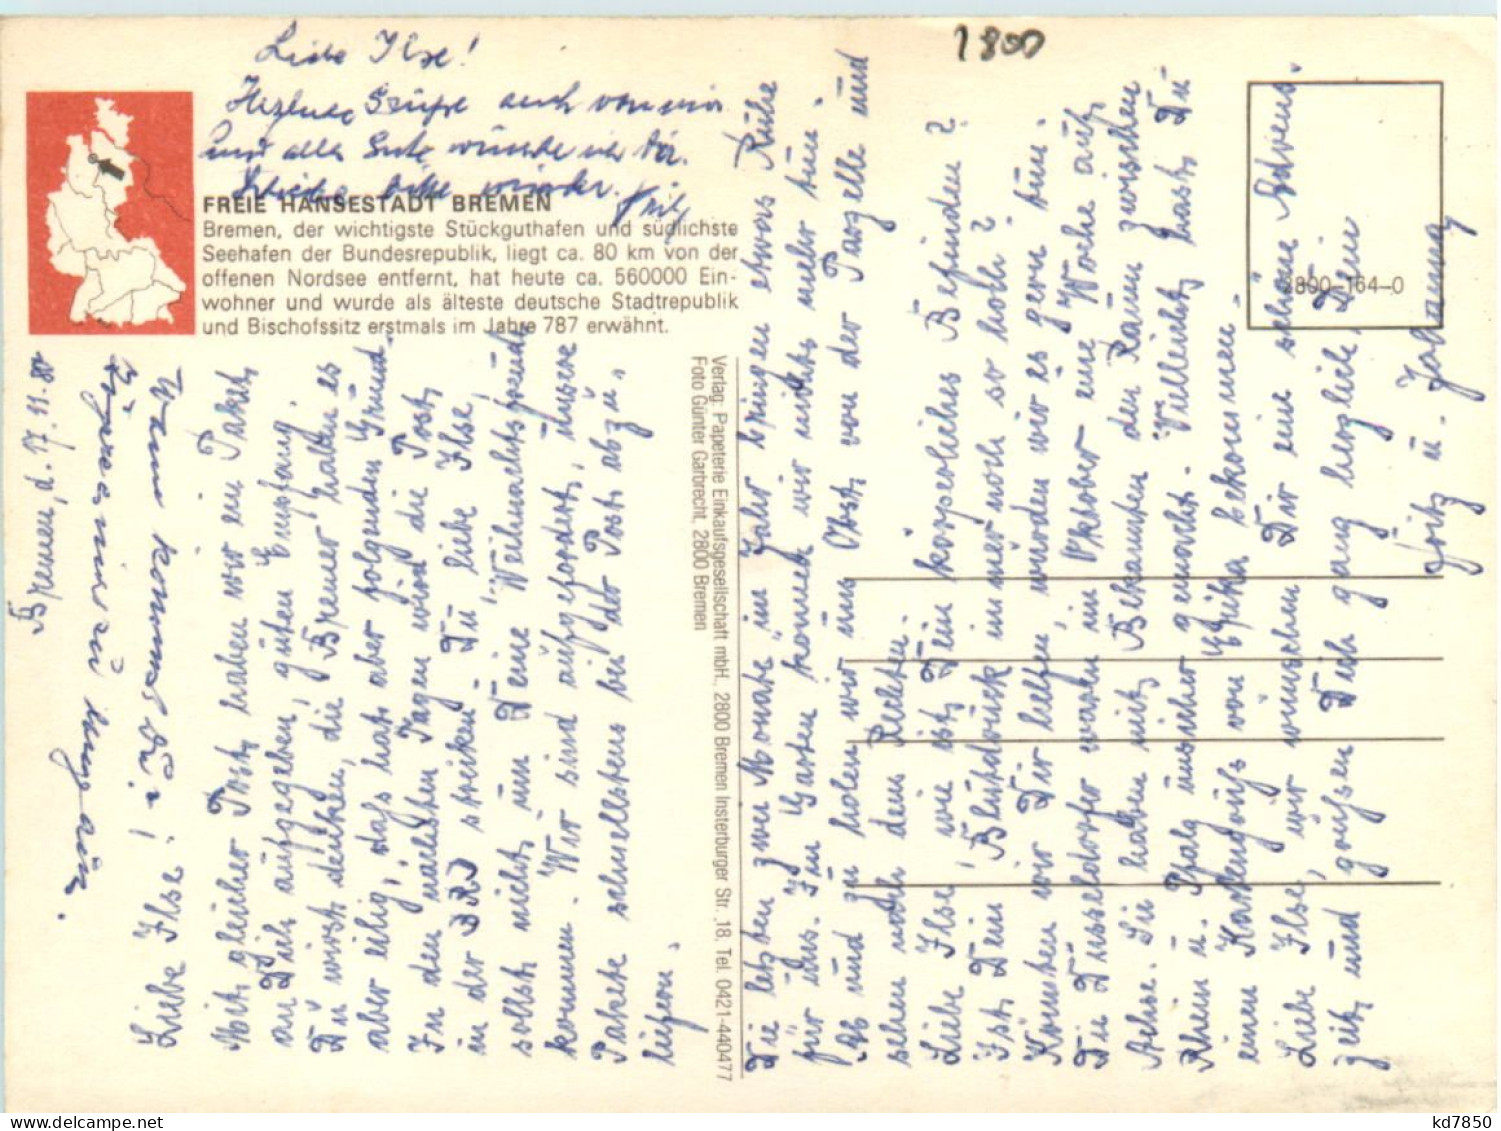 1800
Liebe Ilse!
Herzliche Grüße auch von mir
und alles Gute wünsche ich Dir.
Schreibe bitte wieder. Fritz
FREIE HANSESTADT BREMEN
Bremen, der wichtigste Stückguthafen und südlichste
Seehafen der Bundesrepublik, liegt ca. 80 km von der
offenen Nordsee entfernt, hat heute ca. 560000 Ein-
wohner und wurde als älteste deutsche Stadtrepublik
und Bischofssitz erstmals im Jahre 787 erwähnt.
2800-164-0
Bremen, d. 17.11.80
Liebe Ilse! Wann kommst Du?
Mit gleicher Post haben wir ein Paket
an Dich aufgegeben, guten Empfang.
Du wirst denken, die Bremer haben es
aber eilig, das hat aber folgenden Grund.
In den nächsten Tagen wird die Post
in der BRD streiken. Du, liebe Ilse,
sollst nicht um Deine "Weihnachtsfreude"
kommen. Wir sind aufgefordert, unsere
Pakete schnellstens bei der Post abzu-
liefern.
Verlag: Papeterie Einkaufsgesellschaft mbH., 2800 Bremen Insterburger Str. 18, Tel. 0421-440477
Foto Günter Garbrecht, 2800 Bremen
Die letzten zwei Monate im Jahr bringen etwas Ruhe
für uns. Im Garten können wir nichts mehr tun.
Ab und zu holen wir uns Obst von der Parzelle und
sehen nach dem Rechten.
Liebe Ilse, wie ist Dein körperliches Befinden?
Ist Dein Blutdruck immer noch so hoch?
Könnten wir Dir helfen, würden wir es gern tun.
Die Düsseldorfer waren im Oktober eine Woche auf
Achse. Sie haben mit Bekannten den Raum zwischen
Rhein u. Pfalz unsicher gemacht. Vielleicht hast Du
einen Kartengruß von Erika bekommen.
Liebe Ilse, wir wünschen Dir eine schöne Advents-
zeit und grüßen Dich ganz herzlich, Dein
Fritz u. Johanna
kd7850